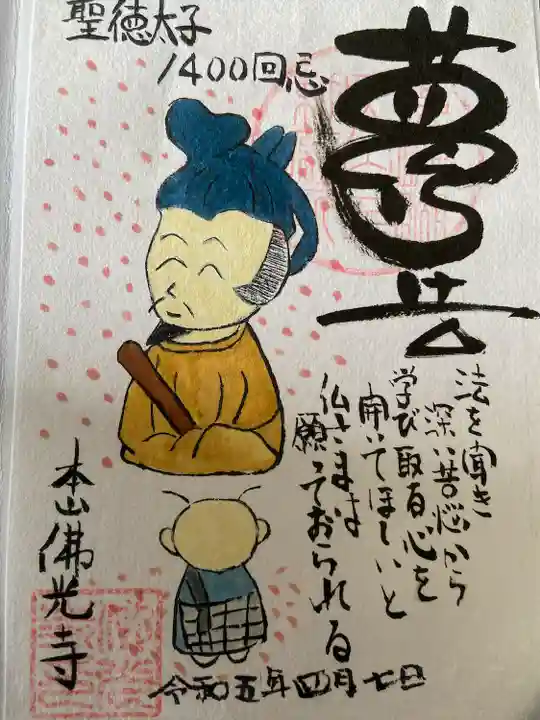 聖徳太子
1400回忌
夢告
法を聞き
深い苦悩から
学び取る心を
開いてほしいと
仏さまは
願っておられる
本山佛光寺
令和五年四月七日